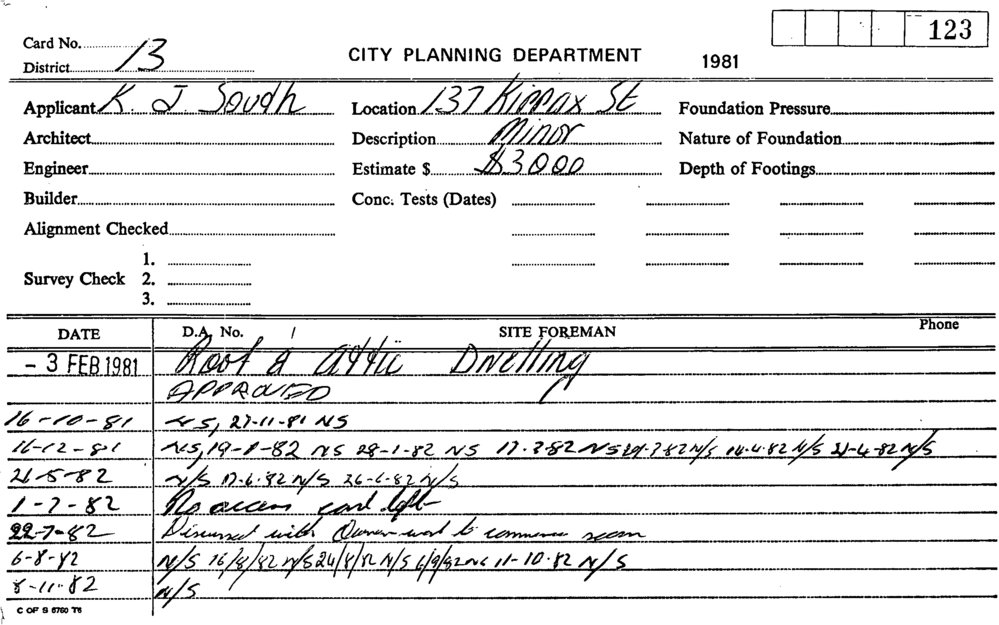 123
Card No.
District 13
CITY PLANNING DEPARTMENT 1981
Applicant K. J. Location 137 Kippax St Foundation Pressure
Architect Description Minor Nature of Foundation
Engineer Estimate $ $3000 Depth of Footings
Builder Conc. Tests (Dates)
Alignment Checked
1.
Survey Check 2.
3.
DATE D.A. No. / SITE FOREMAN Phone
- 3 FEB 1981 Roof & attic Dwelling
APPROVED
16-10-81 N S, 27-11-81 NS
16-12-81 NS, 19-1-82 NS 28-1-82 NS 17-3-82 NS 29-3-82 N/S 14-4-82 N/S 21-4-82 N/S
21-5-82 N/S 17-6-82 N/S 26-6-82 N/S
1-7-82 No access card left
22-7-82 Discussed with Owner work to commence soon
6-8-82 N/S 16/8/82 N/S 24/8/82 N/S 6/9/82 NS 11-10-82 N/S
8-11-82 N/S
C OF S 6760 T6